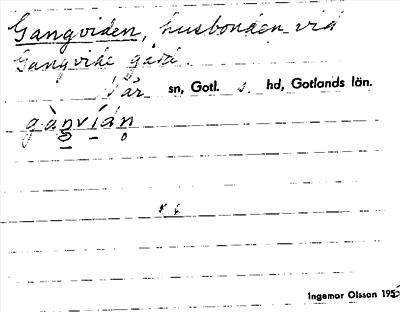 Gangviden, husbonden vid
Gangvide gård.
När sn, Gotl. s. hd, Gotlands län.
gàn̥vián̥
Ingemar Olsson 195